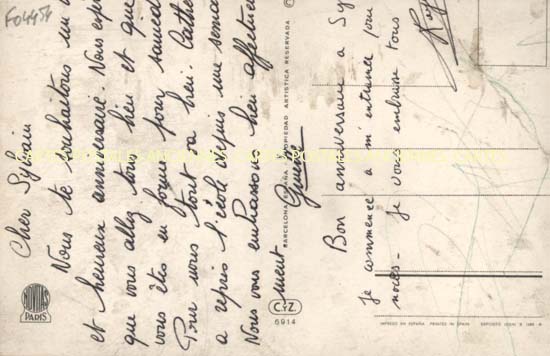 F04454
Cher Sylvain
Nous te souhaitons un b
et heureux anniversaire. Nous esp
que vous allez tous bien et que
vous êtes en forme pour samedi
Pour nous tout va bien. Cathe
a repris l'école depuis une sema
Nous vous embrassons bien affectueu
sement
Bon anniversaire a Sy
je commence a m'entrainer pour
noces - Je vous embrasse tous
NOVITAS
PARIS
C.Y.Z.
6914
BARCELONA ESPAÑA PROPIEDAD ARTISTICA RESERVADA
IMPRESO EN ESPAÑA PRINTED IN SPAIN